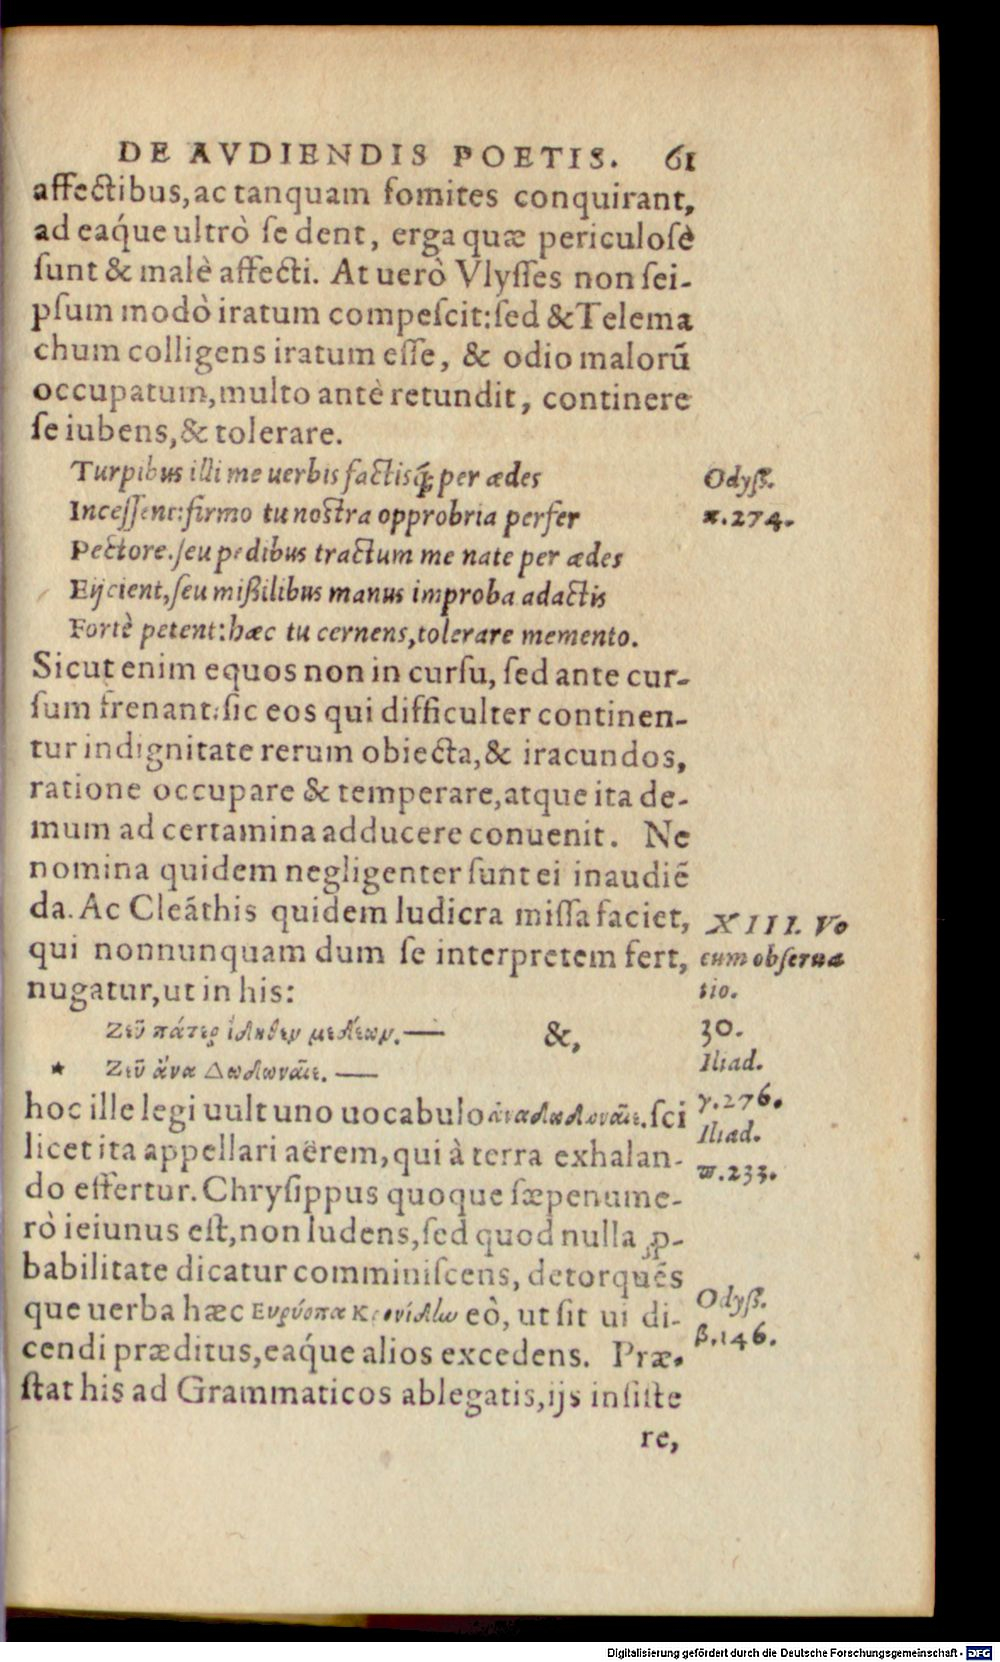 DE AVDIENDIS POETIS. 61
affectibus, ac tanquam fomites conquirant,
ad eaq́ue ultrò se dent, erga quæ periculosè
sunt & malè affecti. At uerò Vlysses non sei-
psum modò iratum compescit: sed & Telema
chum colligens iratum esse, & odio malorũ
occupatum, multo antè retundit, continere
se iubens, & tolerare.
Turpibus illi me uerbis factisq́; per ædes
Incessent: firmo tu nostra opprobria perfer
Pectore. seu pedibus tractum me nate per ædes
Eijcient, seu mißilibus manus improba adactis
Fortè petent: hæc tu cernens, tolerare memento.
Odyß.
π.274.
Sicut enim equos non in cursu, sed ante cur-
sum frenant: sic eos qui difficulter continen-
tur indignitate rerum obiecta, & iracundos,
ratione occupare & temperare, atque ita de-
mum ad certamina adducere conuenit. Ne
nomina quidem negligenter sunt ei inaudiẽ
da. Ac Cleãthis quidem ludicra missa faciet,
qui nonnunquam dum se interpretem fert,
nugatur, ut in his:
XIII. Vo
cum obserua
tio.
Ζεῦ πάτερ ἴδηθεν μεδέων. — &,
* Ζεῦ ἄνα Δωδωναῖε. —
30.
Iliad.
γ.276.
Iliad.
π.233.
hoc ille legi uult uno uocabulo ἀναδωδωναῖε. sci
licet ita appellari aërem, qui à terra exhalan-
do effertur. Chrysippus quoque sæpenume-
rò ieiunus est, non ludens, sed quod nulla ꝓ-
babilitate dicatur comminiscens, detorquẽs
que uerba hæc Ευρύοπα Κρονίδω eò, ut sit ui di-
cendi præditus, eaq́ue alios excedens. Præ-
stat his ad Grammaticos ablegatis, ijs insiste
re,
Odyß.
β.146.
Digitalisierung gefördert durch die Deutsche Forschungsgemeinschaft - DFG